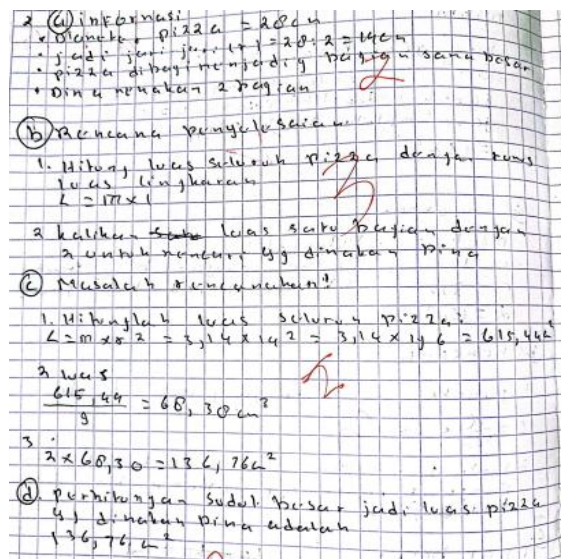 2 (a) informasi
• Diameter pizza = 28 cm
• jadi jari jari (r) = 28 : 2 = 14 cm
• pizza dibagi menjadi 9 bagian sama besar
• Dina memakan 2 bagian
2
(b) Rencana penyelesaian
1. Hitung luas seluruh pizza dengan rumus
luas lingkaran
L = m x
3
2 kalikan luas satu bagian dengan
2 untuk mencari yg dimakan Dina
(c) Masalah rencanakan!
1. Hitunglah luas seluruh pizza:
L = m x r 2 = 3,14 x 14 2 = 3,14 x 196 = 615,44
2 luas
615,44
9
= 68,38 cm²
3
2 x 68,38 = 136,76 cm²
(d). perhitungan sudut besar jadi luas pizza
yg dimakan Dina adalah
136,76 cm²